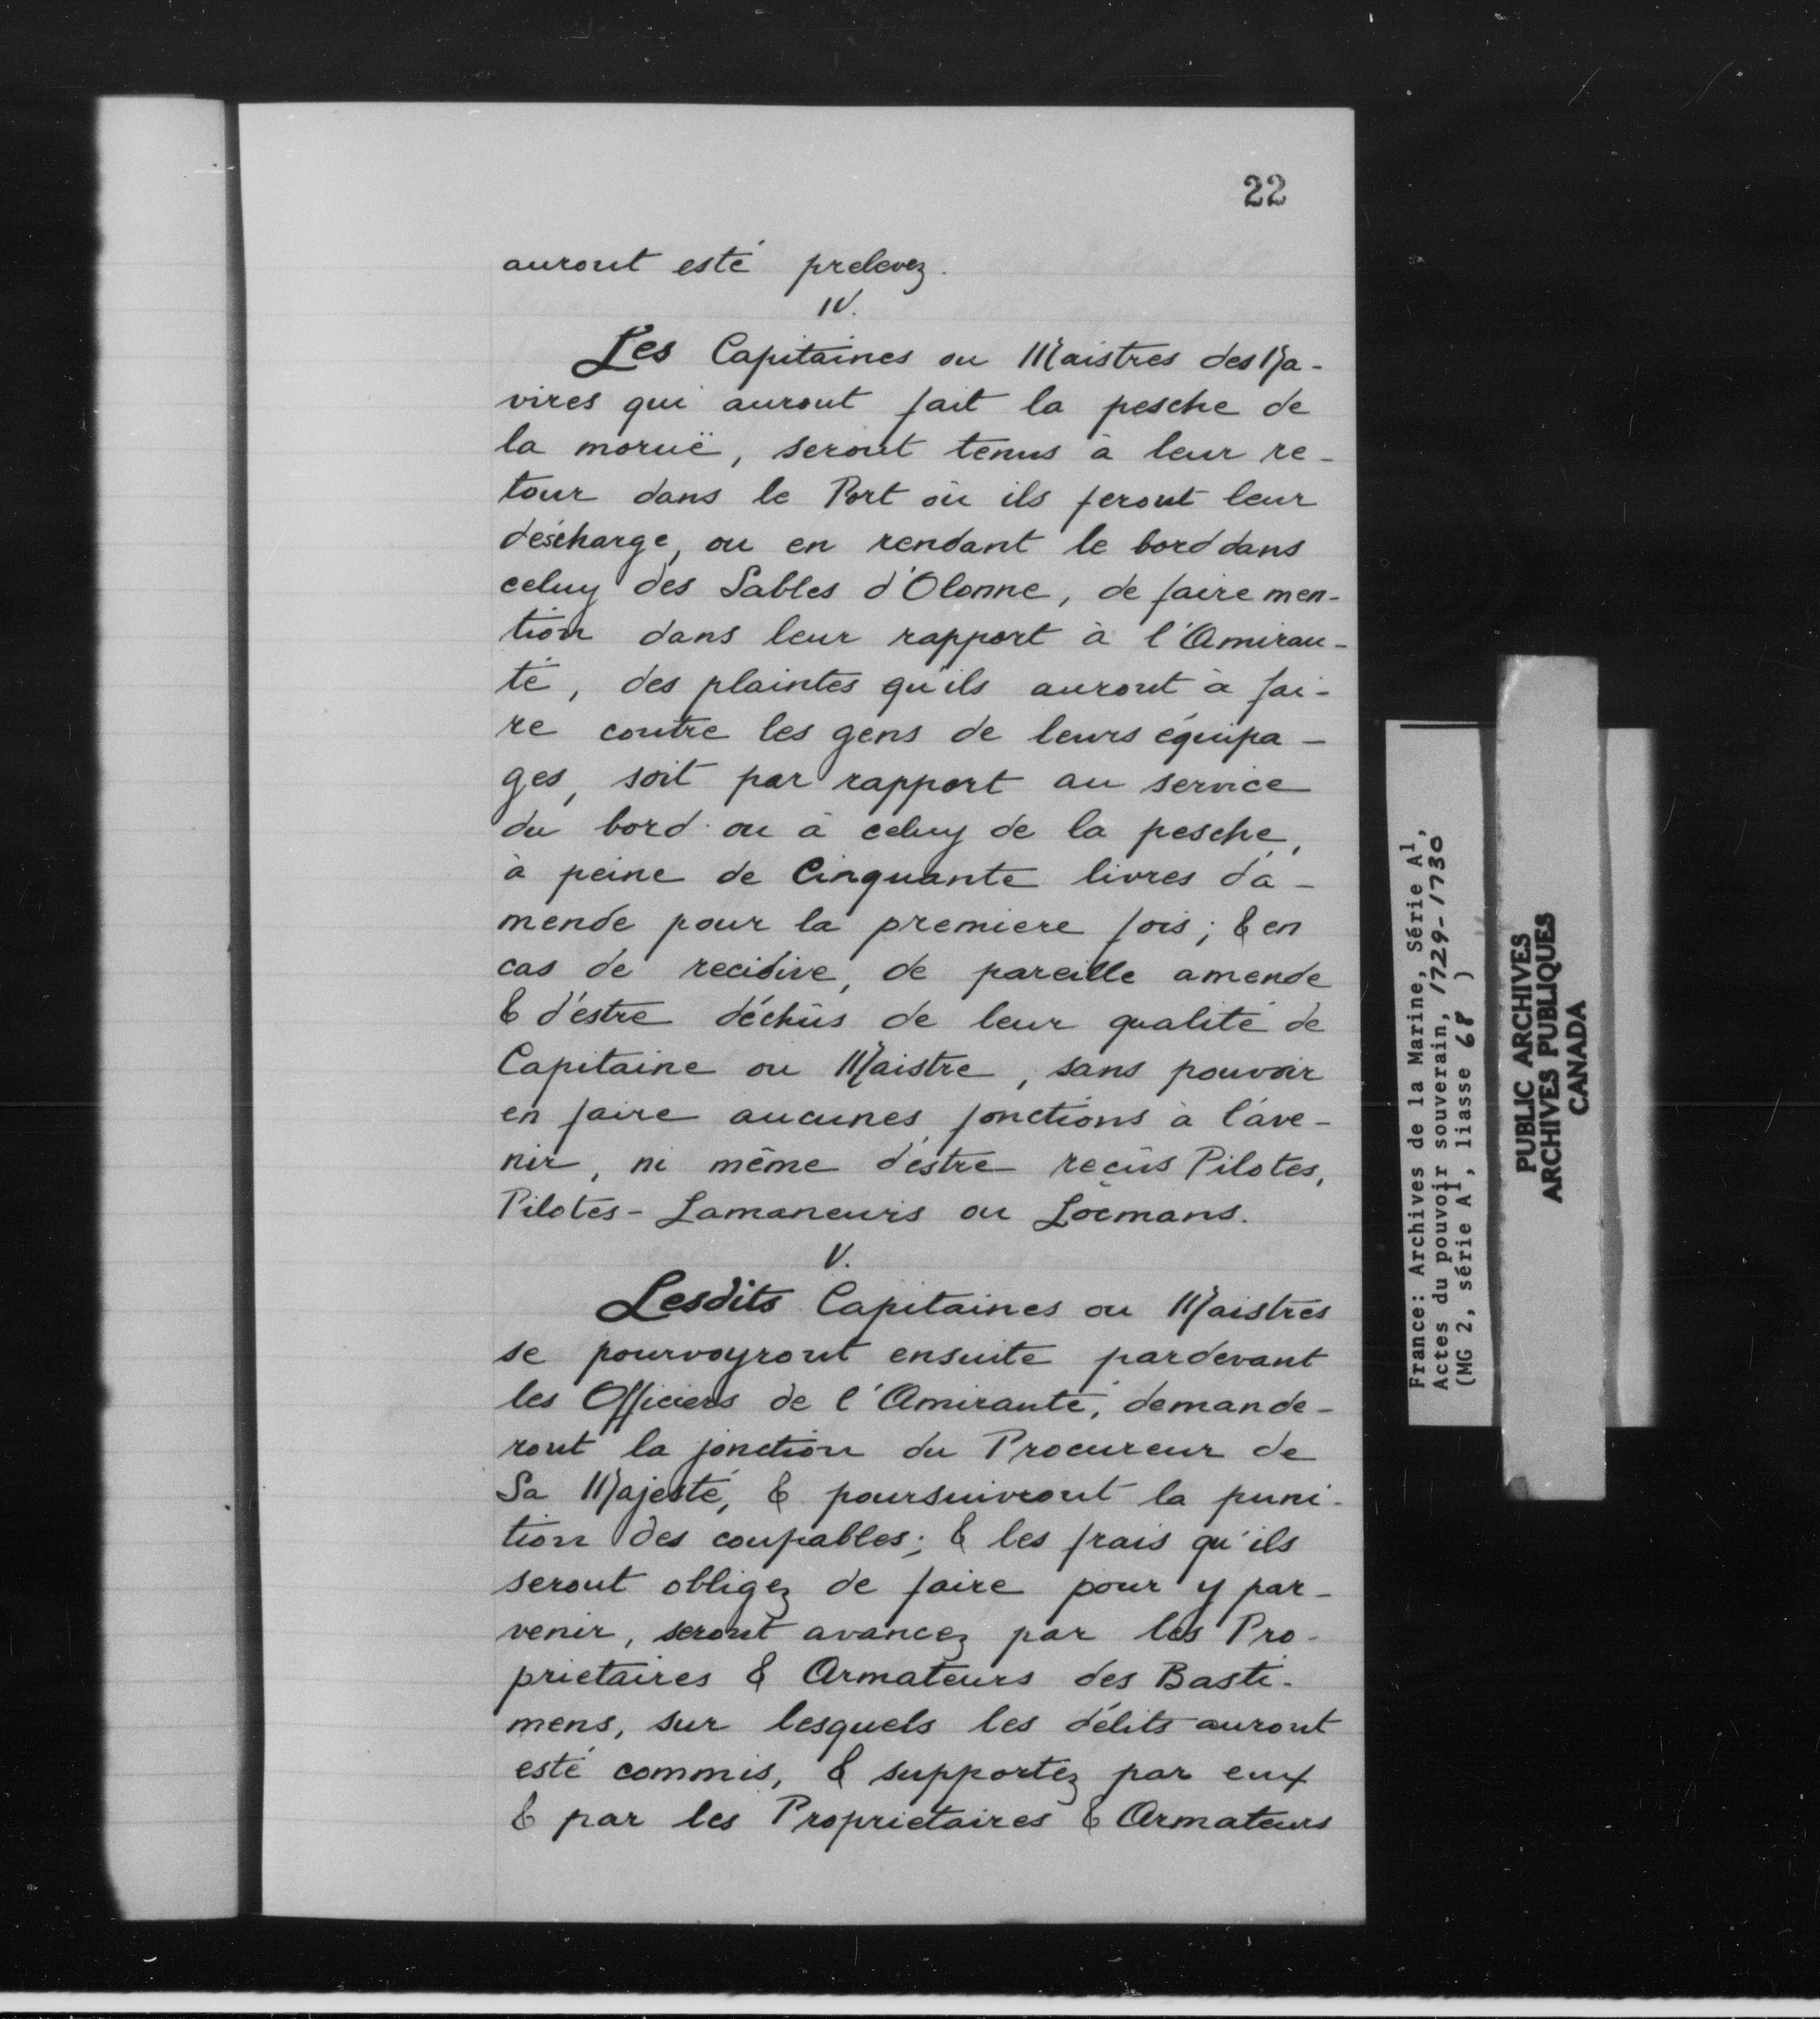 22
auront esté prelevez.
IV.
Les Capitaines ou Maistres des Na-
vires qui auront fait la pesche de
la moruë, seront tenus à leur re-
tour dans le Port où ils feront leur
déscharge, ou en rendant le bord dans
celuy des Sables d'Olonne, de faire men-
tion dans leur rapport à l'Amirau-
té, des plaintes qu'ils auront à fai-
re contre les gens de leurs équipa-
ges, soit par rapport au service
du bord ou à celuy de la pesche,
à peine de Cinquante livres d'a-
mende pour la premiere fois; & en
cas de recidive, de pareille amende
& d'éstre déchûs de leur qualité de
Capitaine ou Maistre, sans pouvoir
en faire aucunes fonctions à l'ave-
nir, ni même d'éstre recûs Pilotes,
Pilotes-Lamaneurs ou Locmans.
V.
Lesdits Capitaines ou Maistres
se pourvoyront ensuite pardevant
les Officiers de l'Amirauté, demande-
ront la jonction du Procureur de
Sa Majesté, & poursuivront la puni-
tion des coupables; & les frais qu'ils
seront obligez de faire pour y par-
venir, seront avancez par les Pro-
prietaires & Armateurs des Basti-
mens, sur lesquels les délits auront
esté commis, & supportez par eux
& par les Proprietaires & Armateurs
France: Archives de la Marine, Série A1,
Actes du pouvoir souverain, 1729-1730
(MG 2, série A1, liasse 68 )
PUBLIC ARCHIVES
ARCHIVES PUBLIQUES
CANADA